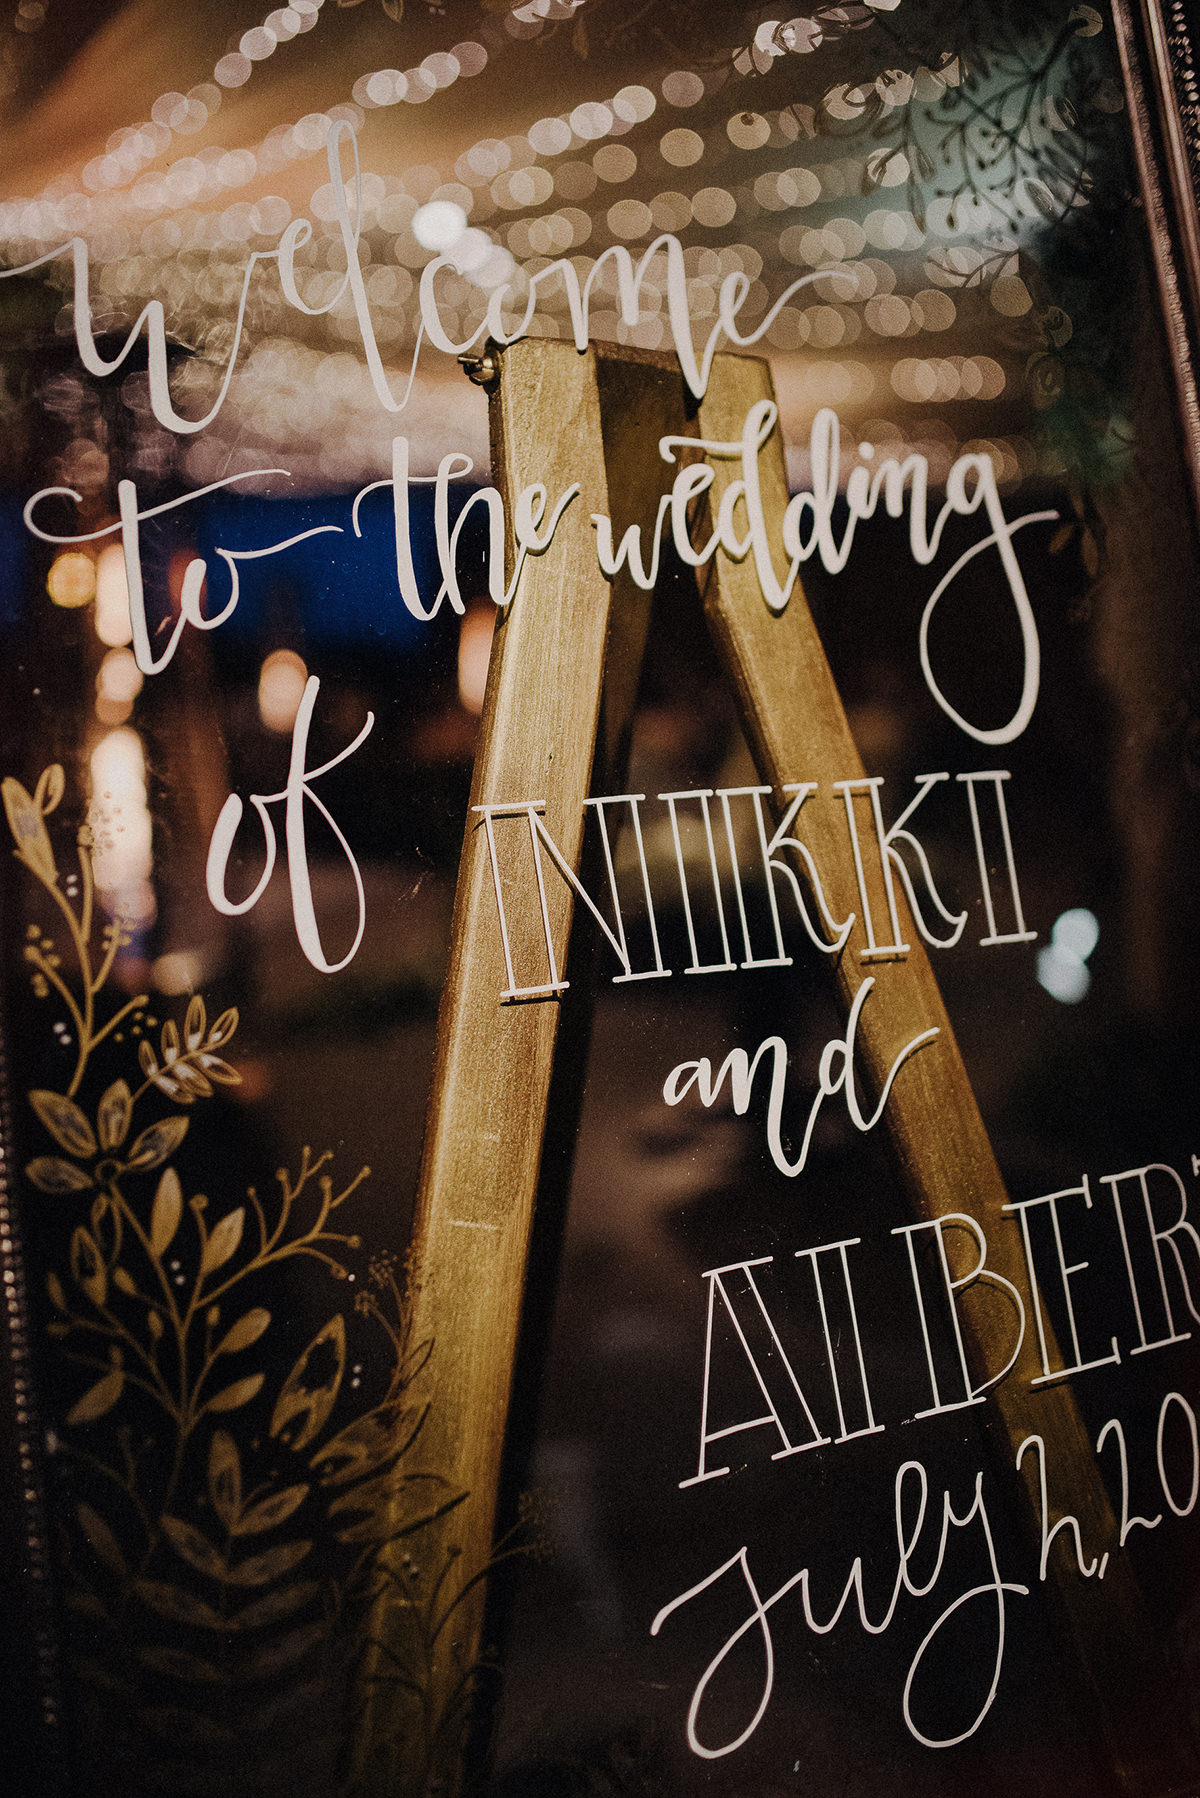 welcome
to the wedding
of NIKKI
and
ALBER
july 2, 20